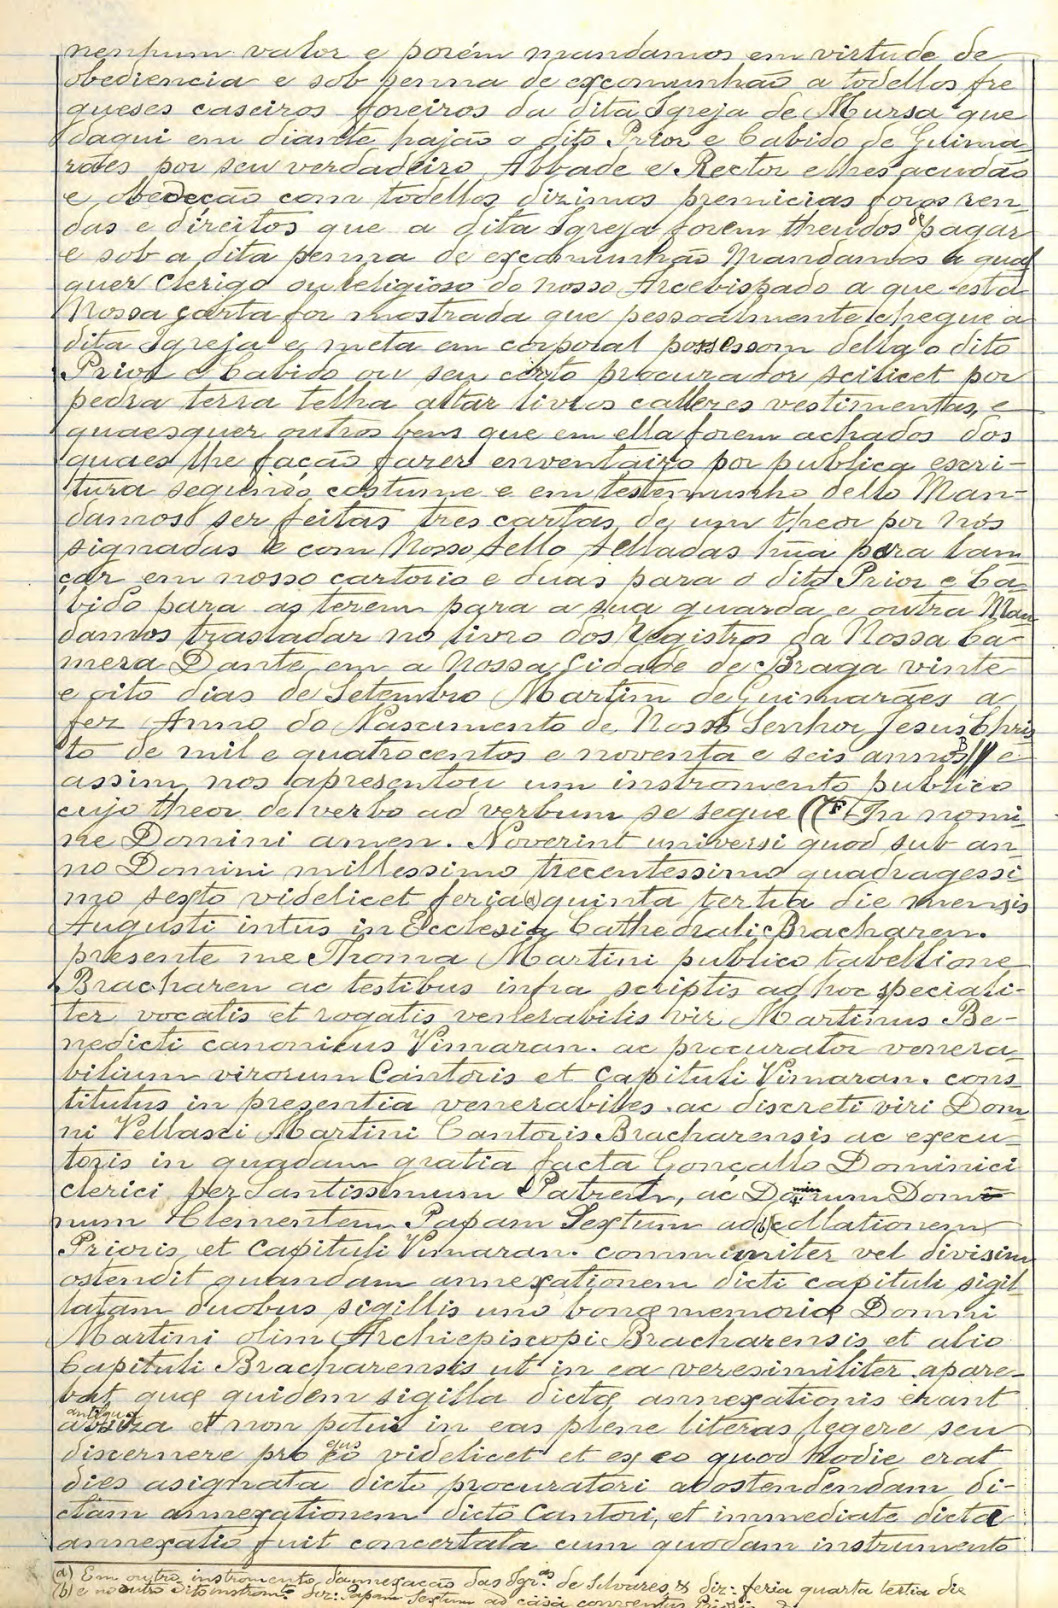 nenhum valor e porém mandamos em virtude de
obediencia e sob penna de excomunhão a todellos fre
gueses caseiros foreiros da dita Igreja de Mursa que
daqui em diante hajão o dito Prior e Cabido de Guima
rães por seu verdadeiro Abbade e Rector e lhes acudão
e obedeção com todellos dizimos premicias foros ren-
das e direitos que a dita Igreja forem theudos de pagar
e sob a dita penna de excomunhão Mandamos a qual
quer clerigo ou religioso do nosso Arcebispado a que esta
Nossa carta for mostrada que pessoalmente chegue a
dita Igreja e meta em corporal possessom della o dito
Prior e Cabido ou seu certo procurador scilicet por
pedra terra telha altar livros calleres vestimentas e
quaesquer outros bens que em ella forem achados dos
quaes lhe fação fazer enventairo por publica escri-
tura segundo costume e em testemunho dello Man-
damos ser feitas tres cartas de um theor por nós
signadas e com Nosso sello selladas hũa pera lam
çar em nosso cartorio e duas para o dito Prior e Ca-
bido para as terem para a sua guarda e outra Man
damos trasladar no livro dos Registros da Nossa Ca-
mera Dante em a Nossa Cidade de Braga vinte
e oito dias de Setembro Martim de Guimarães a
fez Anno do Nascimento de Nosso Senhor Jesus Chris
to de mil e quatrocentos e noventa e seis annos B // e
assim nos apresentou um instromento publico
cujo theor de verbo ad verbum se segue ((F In nomi-
ne Domini amen. Noverint universi quod sub an-
no Domini millessimo trecentessimo quadragessi
mo sexto videlicet feria (a) quinta tertia die mensis
Augusti intus in Ecclesia Cathedralic Bracharen.
presente me Thoma Martini publico tabellione
Bracharen ac testibus infra scriptis ad hoc speciali-
ter vocatis et rogatis venerabilis vir Martinus Be-
nedicti canonicus Vimaran. ac procurator venera-
bilium virorum Cantoris et capituli Vimaran. cons
titutus in presentia venerabiles ac discreti viri Dom
ni Vellasci Martini Cantoris Bracharensis ac execu-
toris in quadam gratia facta Gonçallo Dominici
clerici per Santissimum Patrem, ac Dominum Domi
num Clementem Papam Sextum ad (b) collationem
Prioris et capituli Vimaran. communiter vel divisim
ostendit quandam annexationem dicti capituli sigil
latam duobus sigillis uno bonæ memoriæ Domni
Martini olim Archiepiscopi Bracharensis et alio
Capituli Bracharensis ut in ea veresimiliter apare-
bat quæ quidem sigilla dictæ annexationis erant
antiqua
et non potui in eas plene literas legere seu
discernere pro ejus videlicet et ex eo quod hodie erat
dies asignata dicto procuratori adostendendam di-
ctam annexationem dicto Cantori, et immediate dicta
annexatio fuit concertata cum quodam instrumento
a) Em outro instromento d'annexação das Igr.as de Silvares, & diz: feria quarta tertia die
(b) e no outro dito instrom.to diz: Papam Sextum ad casa conventus Prioris